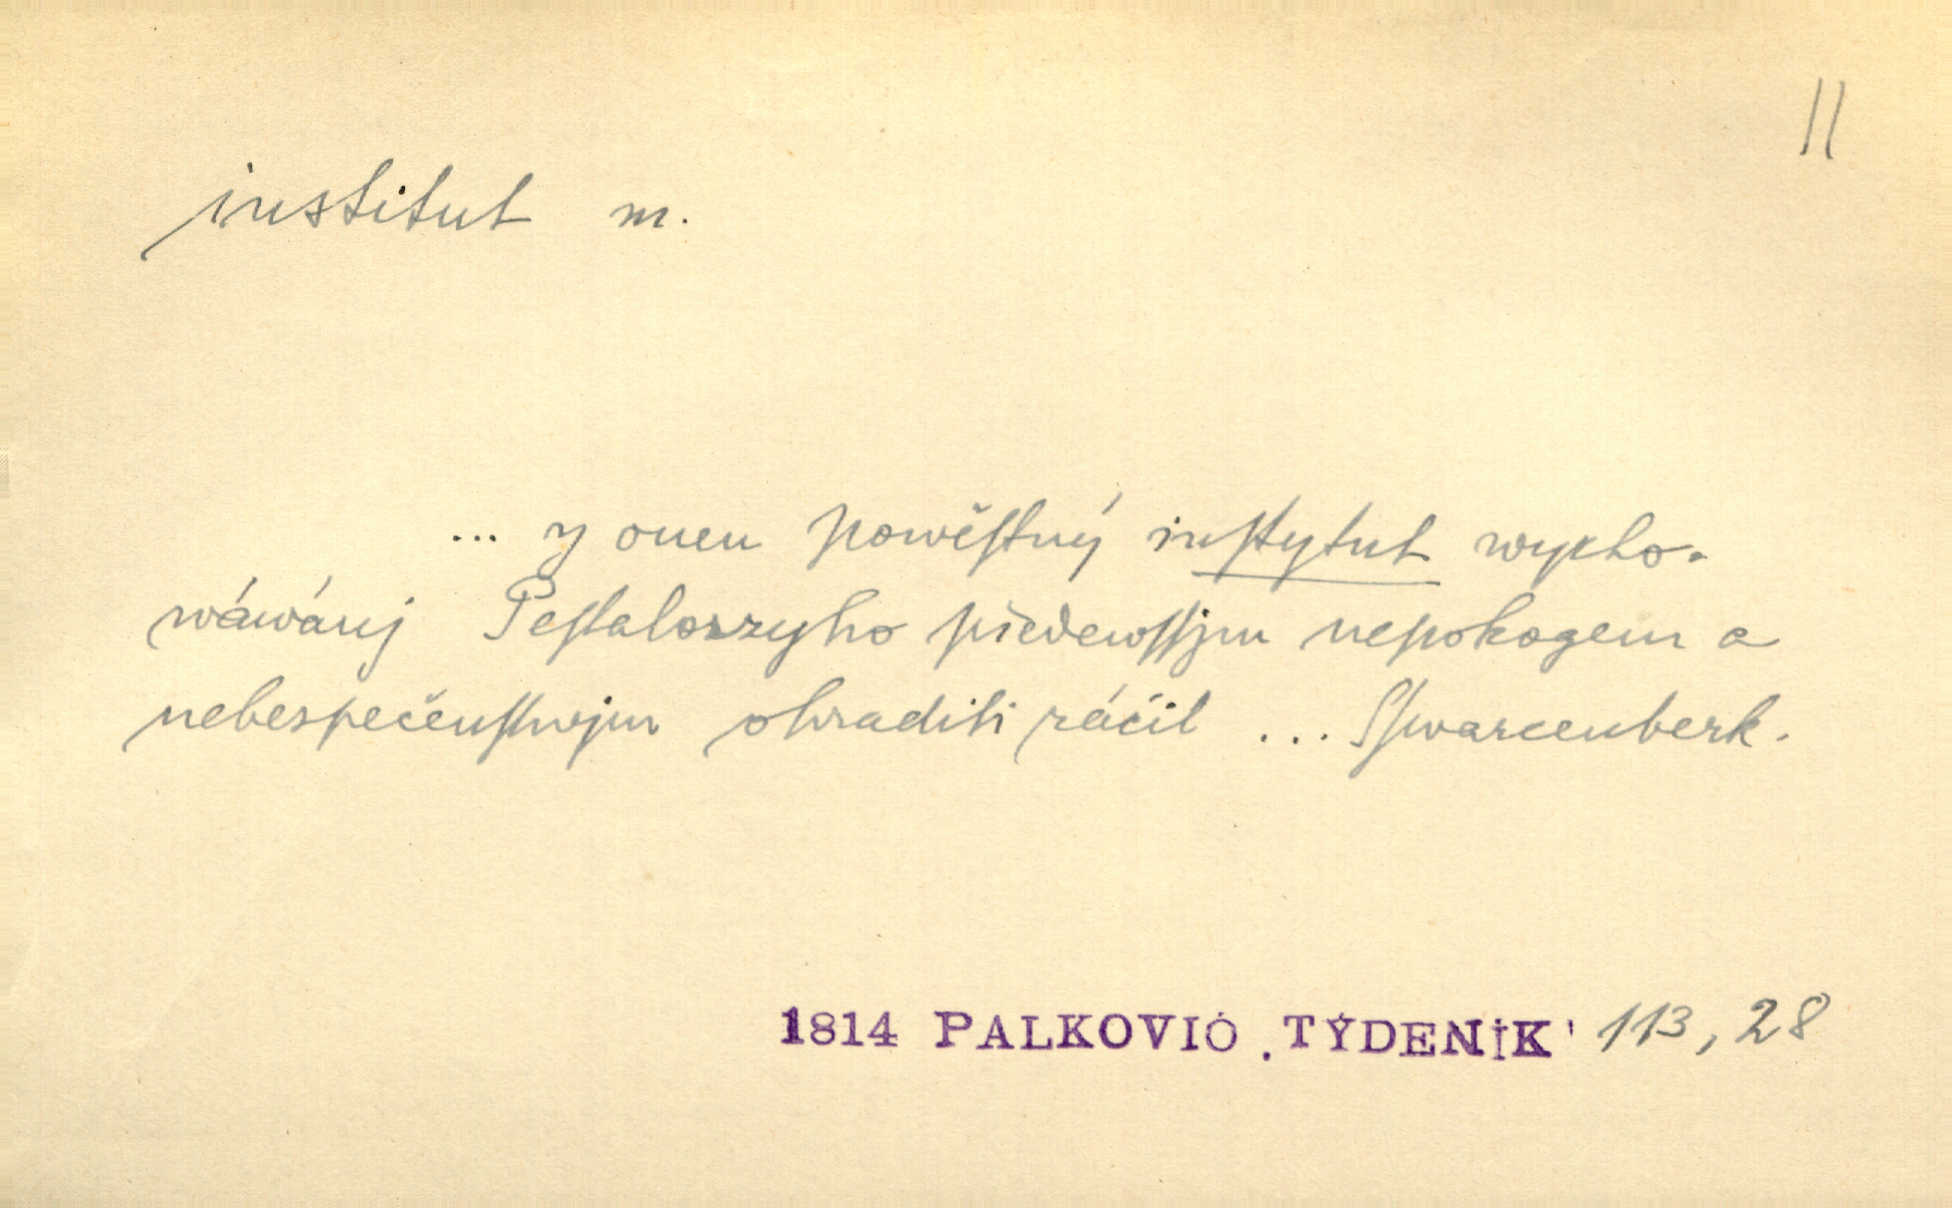 11
institut m.
... y onen powěſtný inſtytut wycho-
wáwánj Peſtalozzyho předewſſjm nepokogem a
nebezpečenſtwjm ohraditi ráčil ... Sſwarcenberk.
1814 PALKOVIČ ‚TÝDENÍK' 113, 28